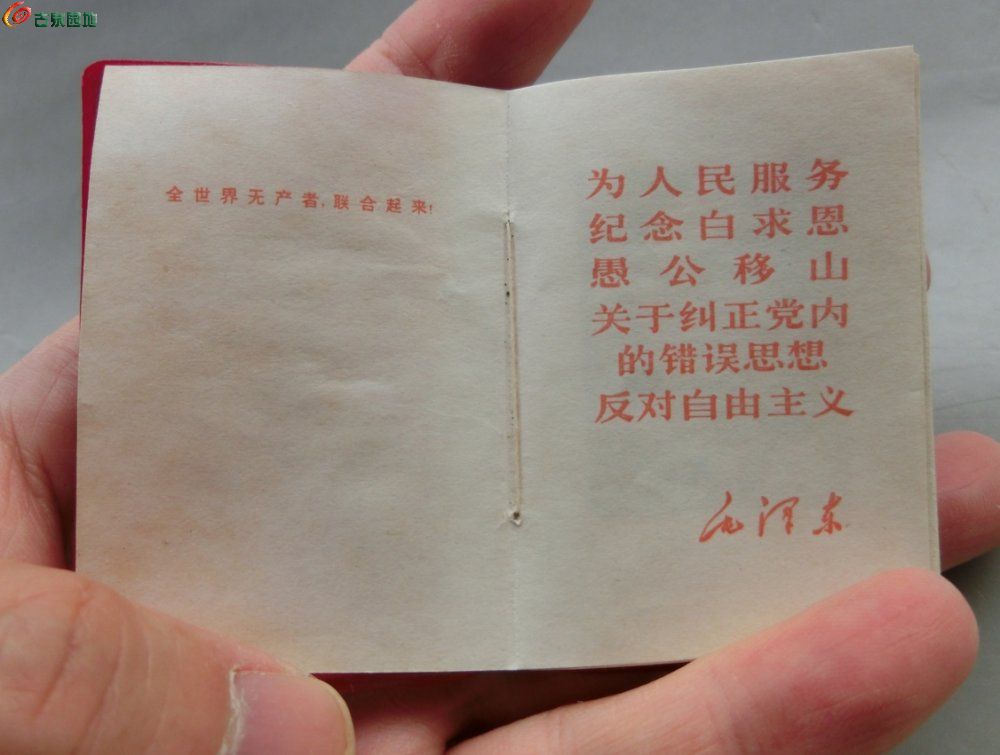 古泉园地
全世界无产者,联合起来!
为人民服务
纪念白求恩
愚公移山
关于纠正党内
的错误思想
反对自由主义
毛泽东